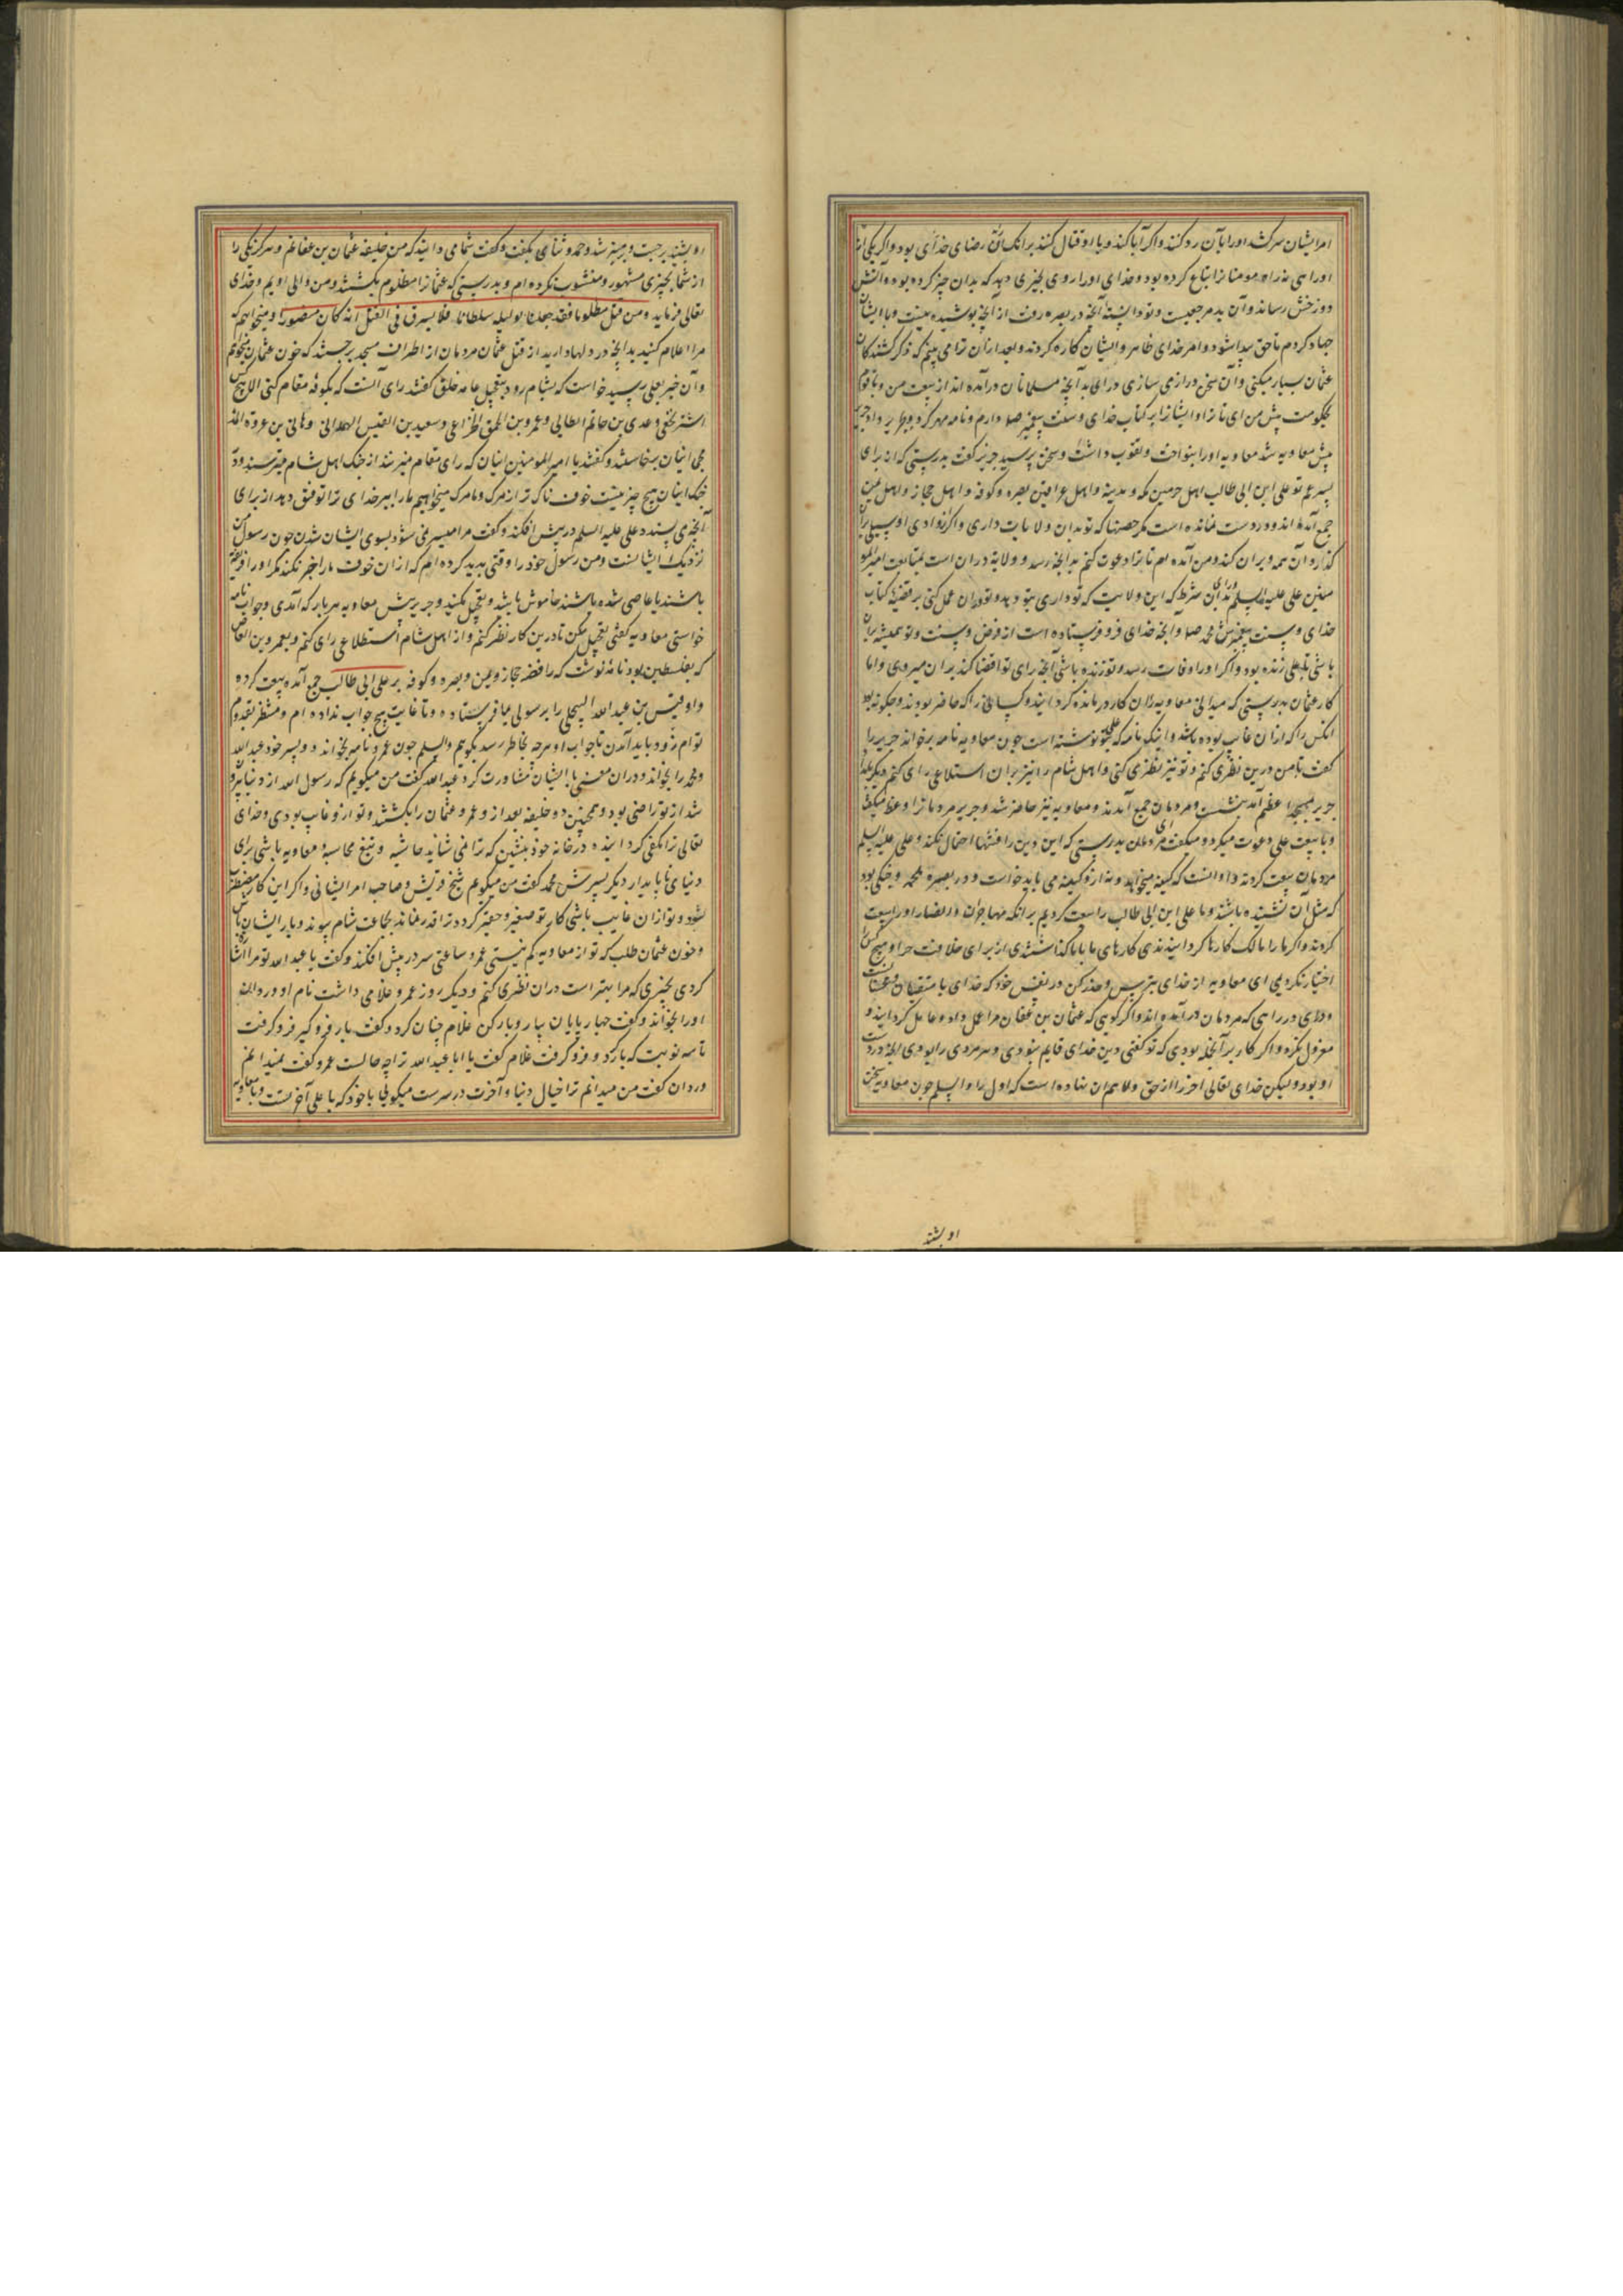 امر ایشان سرکشد او را بآن رد کنند و اگر ابا کند و با او قتال کنند بر آنک آن رضای خدای بود و اگر یکی از
او راهی نه راه مومنانرا اتباع کرده بود و خدای او را روی بچیزی دهد که بدان چیز کرده بود و آتش
دوزخش رساند و آن بد مرجعیست و تو دانسته آنچه در بصره رفت از آنچه پوشیده نیست و با ایشان
جهاد کردم تا حق پیدا شود و امر خدای ظاهر و ایشان کاره کردند و بعد از آن ترا می بینم که ذکر کشندکان
عثمان بسیار میکنی و آن سخن درازمی سازی درآی بدآنچه مسلمانان درآمده اند از بیعت من و با قوم
بحکومت پیش من آی تا ترا و ایشانرا بر کتاب خدای و سنت پیغمبر صلا دارم و نامه مهر کرد و بجریر داد جریر
پیش معاویه شد معاویه او را بنواخت و تعوب داشت و سخن پرسید جریر گفت بدرستی که از برای
پسر عم تو علی ابن ابی طالب اهل حرمین مکه و مدینه و اهل عراقین بصره و کوفه و اهل حجاز و اهل یمن
جمع آمده اند و در دست نمانده است مکر حصنها که تو بدان ولایات داری و اگر از وادی او سیلی بران
گذارد آن همه ویران کند و من آمده ام تا ترا دعوت کنم بدانچه رسد و ولایة در آن است بمتابعت امیر المو
منین علی علیه السلم و برای آن شرط که این ولایت که تو داری بتو دهد و تو دران عمل کنی بر قضیهٔ کتاب
خدای و سنت پیغمبرش محمد صلا و آنچه خدای فرو فرستاده است از فرض و سنت و تو همیشه بران
باشی تا علی زنده بود و اگر او را وفات رسد و تو زنده باشی آنچه رای تو اقضا کند بران میروی و اما
کار عثمان بدرستی که میدانی معاویه ازان کار درمانده گردانیدند و کسانی را که حاضر بودند و چکونه بود
آنکس را که ازان غایب بوده باشد و اینک نامه که علی بتو نوشته است چون معاویه نامه بر خواند جریر را
گفت تا من درین نظری کنم و تو نیز نظری کنی و اهل شام را نیز بران استطلاع رای کنم دیگر بامداد
جریر بمسجد اعظم آمد بنشست و مردمان جمع آمدند و معاویه نیز حاضر شد و جریر مردمانرا وعظ میگفت
و با بیعت علی دعوت میکرد و میگفت ای مردمان بدرستی که این دین را فتنها احتمال نکند و علی علیه السلم
مردمان بیعت کردند و او آنست که کینه میخواهد و نه ازو کینه می باید خواست و در بصره ملحمه و جنگی بود
که مثل آن نشنیده باشند و با علی ابن ابی طالب را بیعت کردیم بر آنکه مهاجران و انصار او را بیعت
کردند و اگر ما را مالک کارها گردانیدندی کارهای ما با ما گذاشتندی از برای خلافت جز او هیچ کس را
اختیار نکردیمی ای معاویه از خدای بترس و حذر کن در نفس خود که خدای با متقیان و محسنانست
و درآی در راهی که مردمان درآمده اند و اگر گویی که عثمان بن عفان مرا عمل داد و عامل گردانید و
معزول نکرد و اگر کار بر آنجمله بودی که تو گفتی دین خدای قایم نبودی و هر مردی را بودی آنچه در دست
او بود ولیکن خدای تعالی آخر را از حق ولاة همان نهاده است که اول را و السلم چون معاویه سخن
او بشنید
او بشنید برجست و بر منبر شد و حمد و ثنا می بگفت و گفت شما می دانید که من خلیفه عثمان بن عفانم و هرگز یکی را
از شما بچیزی مشهور و منسوب نکرده ام و بدرستی که عثمانرا مظلوم بکشتند و من والی اویم و خدای
تعالی فرماید و من قتل مظلوما فقد جعلنا لولیه سلطانا فلا یسرف فی القتل انه کان منصورا و میخواهم که
مرا اعلام کنید بدآنچه در دلها دارید از قتل عثمان مردمان از اطراف مسجد برجستند که خون عثمان میخواهیم
و آن خبر بعلی رسید خواست که بشام رود بتعجیل عامه خلق گفتند رای آنست که بکوفه مقام کنی الا پنج کس
اشتر نخعی و عدی بن حاتم الطایی و عمرو بن الحمق الخزاعی و سعید بن القیس الهمدانی و هانی بن عروة المذ
حجی اینان برخاستند و گفتند یا امیر المومنین اینان که رای مقام میزنند از جنک اهل شام میترسند و در
جنک اینان هیچ چیز نیست خوف ناک تر از مرک و ما مرک میخواهیم ما را ببر خدای ترا توفیق دهد از برای
آنچه می پسندد علی علیه السلم در پیش افکند و گفت مرا میسر نمی شود بسوی ایشان شدن چون رسول من
نزدیک ایشانست و من رسول خود را وقتی پدید کرده ام که ازان خوف ما را خبر نکند مگر او را فریفته
باشند یا عاصی شده باشند خاموش باشید و تعجیل مکنید و جریر پیش معاویه هر بار که آمدی و جواب نامه
خواستی معاویه گفتی تعجیل مکن تا درین کار نظر کنم و از اهل شام استطلاع رای کنم و بعمرو بن العاص
که بفلسطین بود نامهٔ نوشت که رافضه حجاز و یمن و بصره و کوفه بر علی ابی طالب جمع آمده بیعت کردند
و او قیس بن عبد الله البجلی را برسولی بما فرستاده و تا غایت هیچ جواب نداده ام و منتظر قدوم
توام زود باید آمدن تا جواب او هرچه بخاطر رسد بگویم والسلم چون عمرو نامه بخواند دو پسر خود عبد الله
و محمد را بخواند و دران معنی با ایشان مشاورت کرد عبد الله گفت من میگویم که رسول الله از دنیا بیرون
شد از تو راضی بود و همچنین دو خلیفه بعد از و عمر و عثمان را بکشتند و تو ازو غایب بودی و خدای
تعالی ترا مکفی گردانیده در خانه خود بنشین که ترا نمی شاید حاشیه و تبع محاسبهٔ معاویه باشی برای
دنیای ناپایدار دیگر پسرش محمد گفت من میگویم شیخ قریش و صاحب امر ایشانی و اگر این کار منقضی
شود و تو ازان غایب باشی کار تو صغیر و حقیر گردد ترا قدر نماند بجماعت شام پیوند و یار ایشان باش
و خون عثمان طلب که تو از معاویه کم نیستی عمرو ساعتی سر در پیش افکند و گفت یا عبد الله تو مرا اشارت
کردی بچیزی که مرا بهتر است دران نظری کنم و دیگر روز عمرو غلامی داشت نام او وردان
او را بخواند و گفت چهار پایان بیار و بار کن غلام چنان کرد و گفت بار فرو گیر فرو گرفت
تا سه نوبت که بار کرد و فرو گرفت غلام گفت یا ابا عبد الله ترا چه حالست عمرو گفت نمیدانم
وردان گفت من میدانم ترا خیال دنیا و آخرت در سرست میگویی با خود که با علی آخرتست و با معاویه